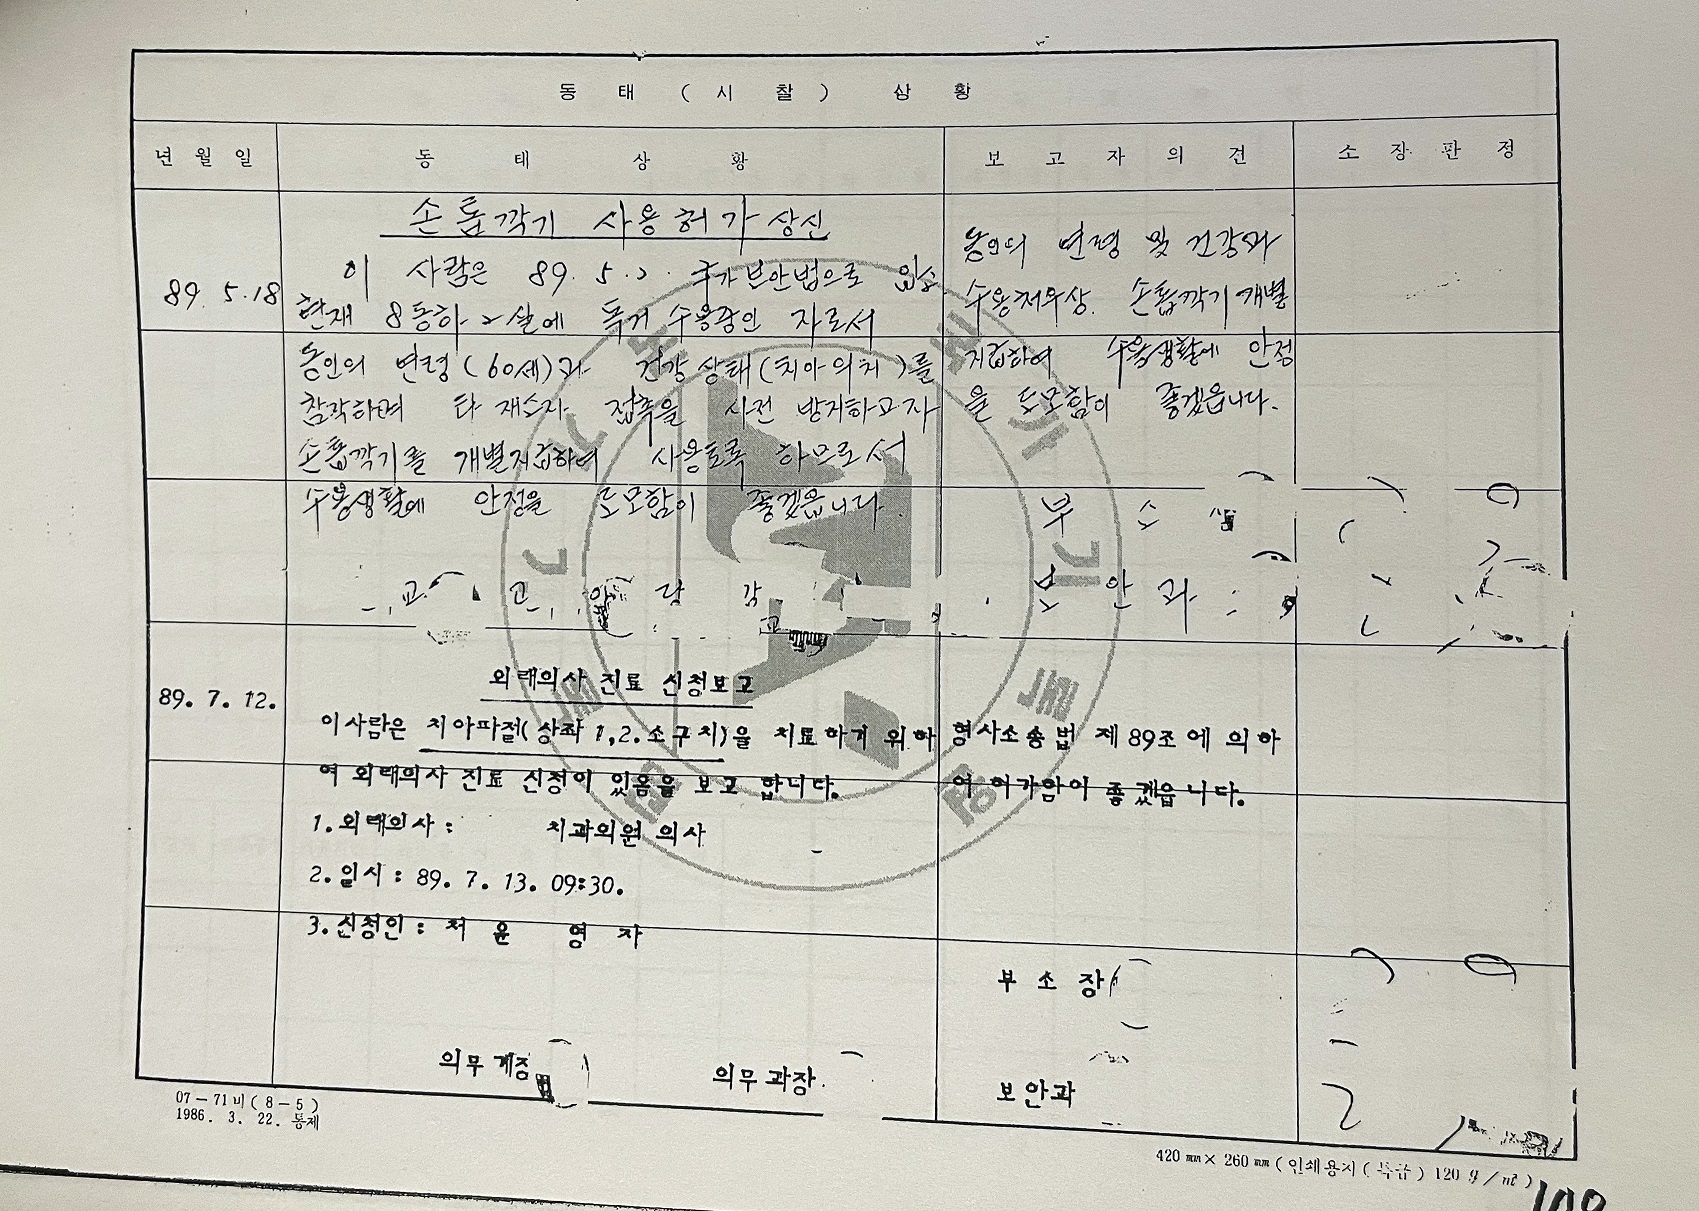 동 태 ( 시 찰 ) 상 황
년 월 일 동 태 상 황 보 고 자 의 견 소 장 판 정
손톱깍기 사용허가상신
89. 5.18
이 사람은 89. 5. 2. 국가보안법으로 입소
현재 8동하 2실에 독거 수용중인 자로서
동인의 연령(60세)과 건강상태(치아의치)를
참작하며 타 재소자 접촉을 사전 방지하고자
손톱깍기를 개별지급하여 사용토록 하므로서
수용생활에 안정을 도모함이 좋겠읍니다.
동인의 연령 및 건강과
수용처우상. 손톱깍기 개별
지급하여 수용생활에 안정
을 도모함이 좋겠읍니다.
부 소
보 안 과
89. 7. 12.
외래의사 진료 신청보고
이사람은 치아파절(상좌 1,2.소구치)을 치료하기 위하
여 외래의사 진료 신청이 있음을 보고 합니다.
1.외래의사 : 치과의원 의사
2.일시 : 89. 7. 13. 09:30.
3.신청인 : 처 윤 영 자
의무계장 의무과장.
형사소송법 제89조에 의하
여 허가함이 좋겠읍니다.
부 소 장
보안과
07-71비(8-5)
1986. 3. 22. 통제
420㎜×260㎜(인쇄용지(특급) 120 g/㎡)